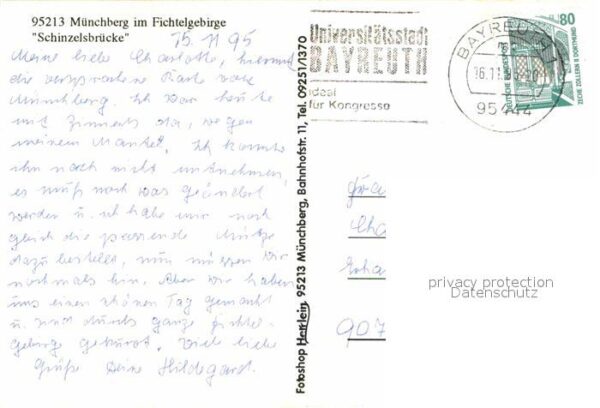 95213 Münchberg im Fichtelgebirge
"Schinzelsbrücke"
15.11.95
Meine liebe Charlotte, hiermit
die versprochene Karte von
Münchberg. Ich war heute
mit Zimmers da, wegen
meinem Mantel, Ich konnte
ihn noch nicht mitnehmen,
es muß noch was geändert
werden u. ich habe mir noch
gleich die passende Mütze
dazu bestellt, nun müssen wir
nochmals hin. Aber wir haben
uns einen schönen Tag gemacht
u. sind durchs ganze Fichtel-
gebirge gekurvt. Viele liebe
Grüße Deine Hildegard.
Fotoshop Herrlein, 95213 Münchberg, Bahnhofstr. 11, Tel. 09251/1370
Universitätsstadt
BAYREUTH
ideal
für Kongresse
BAYREUTH 1
16.11.
95444
80
DEUTSCHE BUNDESPOST
ZECHE ZOLLERN II DORTMUND
Fra
Cha
Joha
907
privacy protection
Datenschutz